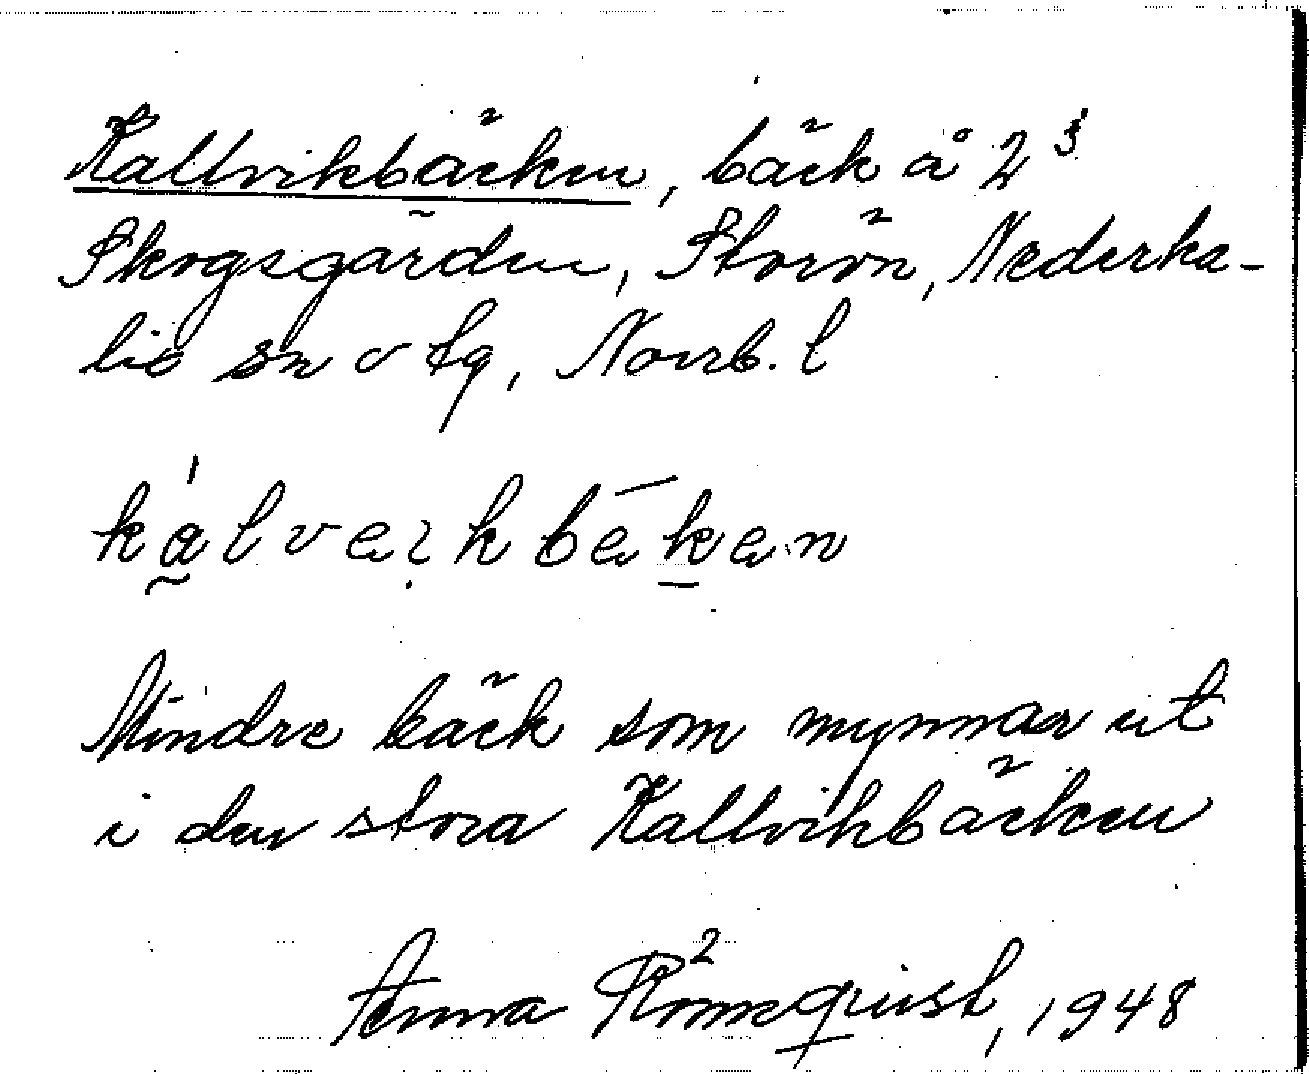 Kallvikbäcken, bäck å 2³
Skogsgärden, Storön, Nederka-
lix sn o tg, Norrb. l
kálveikbēken
Mindre bäck som mynnar ut
i den stora Kallvikbäcken
Anna Rönnqvist, 1948